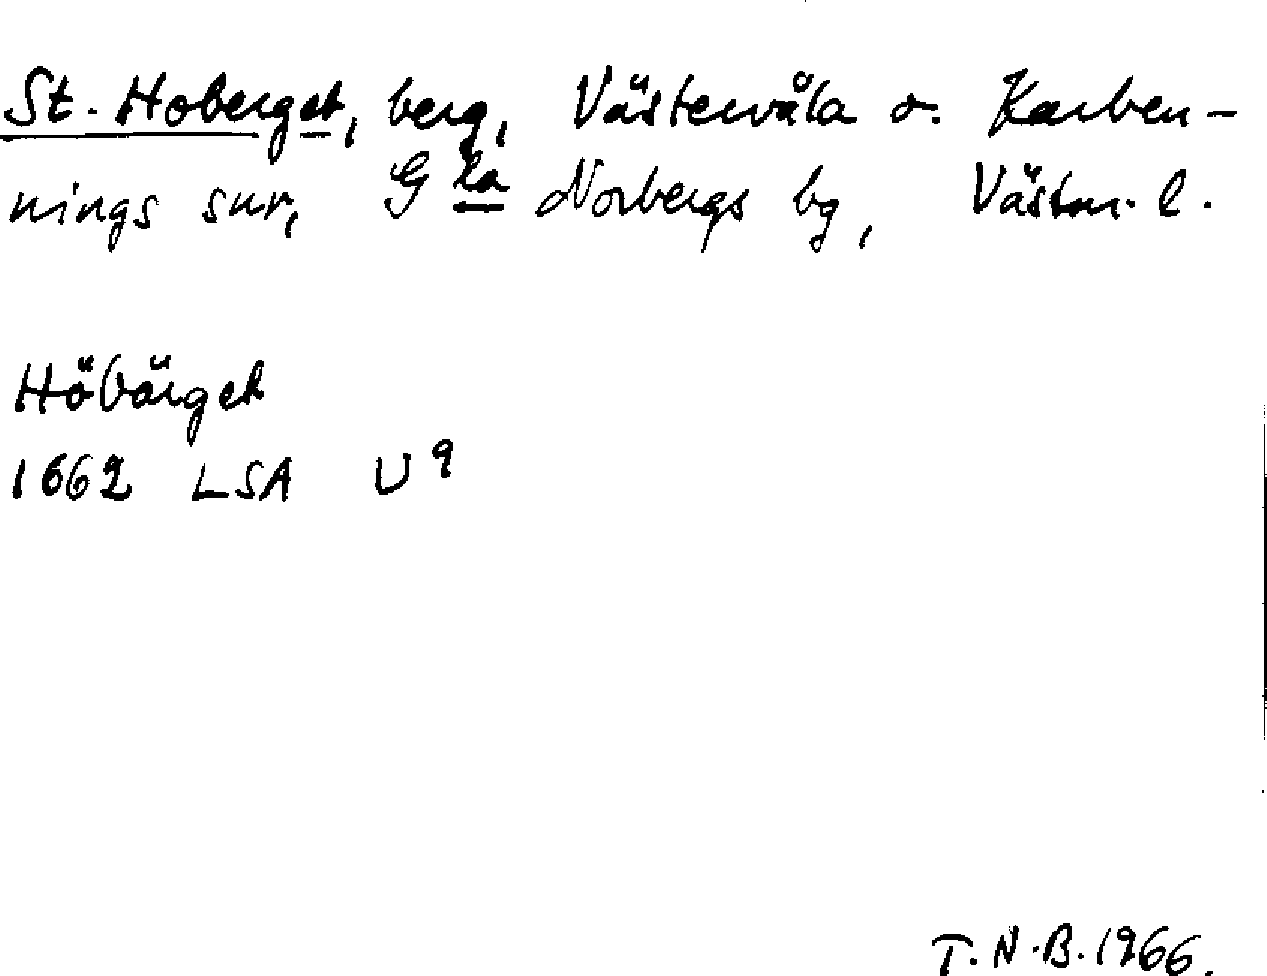 St. Hoberget, berg, Västervåla o. Karben-
nings snr, G la Norbergs bg, Västm. l.
Höbärget
1662 LSA U 9
T.N.B. 1966.